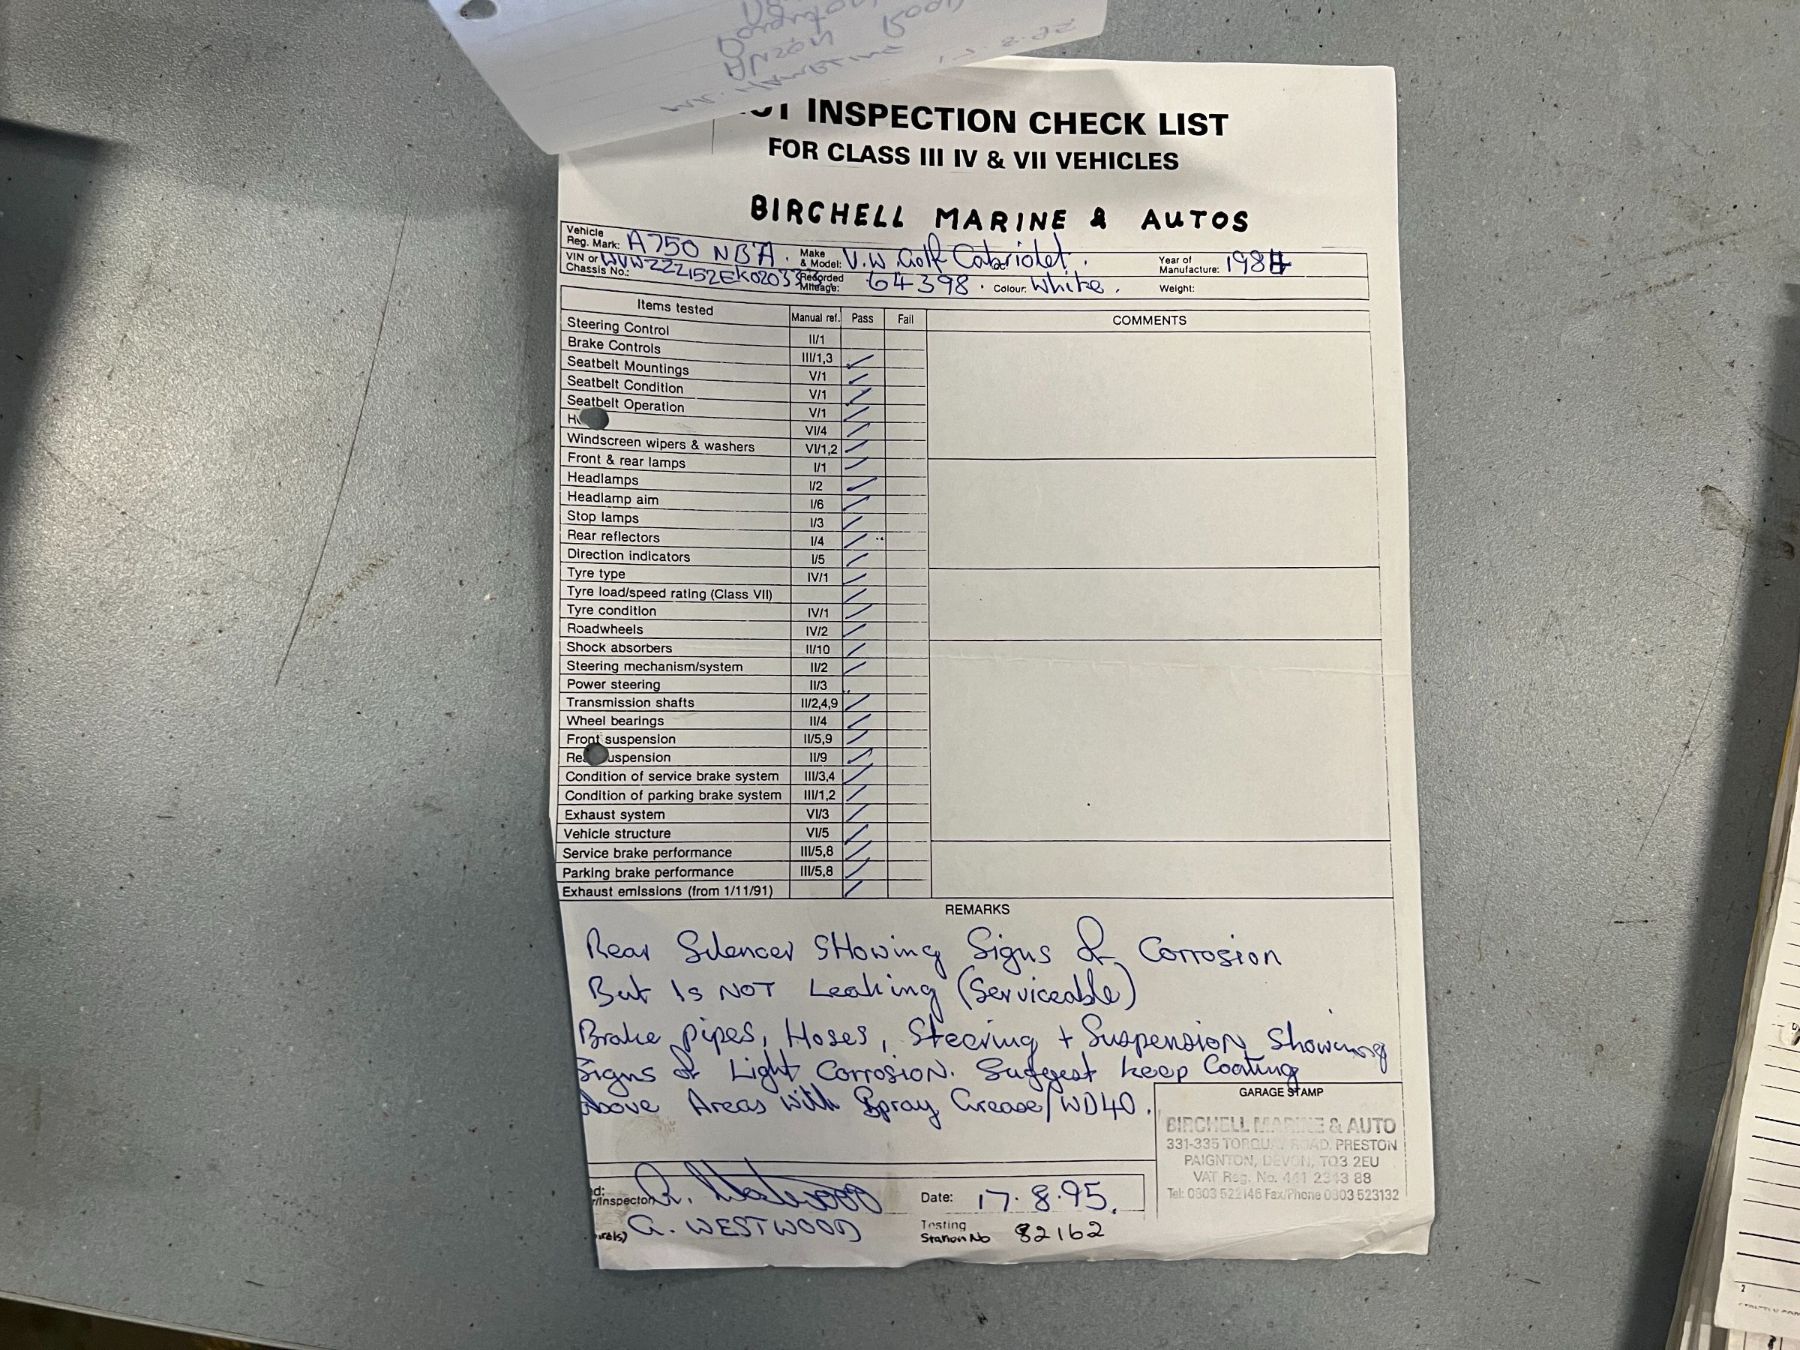 INSPECTION CHECK LIST
FOR CLASS III IV & VII VEHICLES
BIRCHELL MARINE & AUTOS
Vehicle Reg. Mark: A750 NBA. Make & Model: V.W. Golf Cabriolet. Year of Manufacture: 1984
VIN or Chassis No.: Recorded Mileage: 64398. Colour: White. Weight:
Items tested Manual ref. Pass Fail COMMENTS
Steering Control II/1
Brake Controls III/1,3
Seatbelt Mountings V/1
Seatbelt Condition V/1
Seatbelt Operation V/1
VI/4
Windscreen wipers & washers VI/1,2
Front & rear lamps I/1
Headlamps I/2
Headlamp aim I/6
Stop lamps I/3
Rear reflectors I/4
Direction indicators I/5
Tyre type IV/1
Tyre load/speed rating (Class VII)
Tyre condition IV/1
Roadwheels IV/2
Shock absorbers II/10
Steering mechanism/system II/2
Power steering II/3
Transmission shafts II/2,4,9
Wheel bearings II/4
Front suspension II/5,9
Rear suspension II/9
Condition of service brake system III/3,4
Condition of parking brake system III/1,2
Exhaust system VI/3
Vehicle structure VI/5
Service brake performance III/5,8
Parking brake performance III/5,8
Exhaust emissions (from 1/11/91)
REMARKS
Rear Silencer SHowing Signs of Corrosion
But Is NOT Leaking (Serviceable)
Brake pipes, Hoses, Steering + Suspension Showing
Signs of Light Corrosion. Suggest keep Coating
Above Areas with Spray Grease/WD40.
GARAGE STAMP
BIRCHELL MARINE & AUTO
331-335 TORQUAY ROAD, PRESTON
PAIGNTON, DEVON, TQ3 2EU
VAT Reg. No. 441 2343 88
Tel: 0803 522146 Fax/Phone 0803 523132
/Inspector) G. Westwood Date: 17.8.95.
G. WESTWOOD Testing Station No 82162